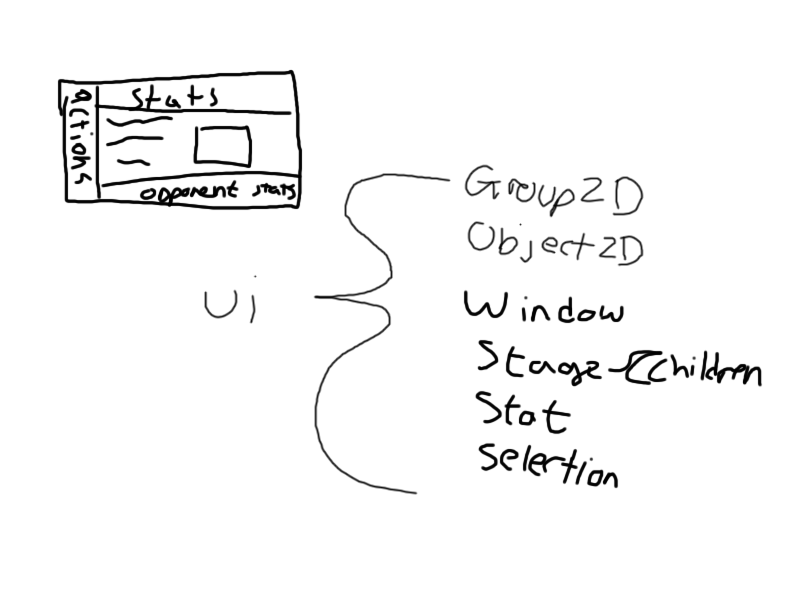 stats
actions
opponent stats
Ui
Group2D
Object2D
Window
Stage-[Children
Stat
Selection